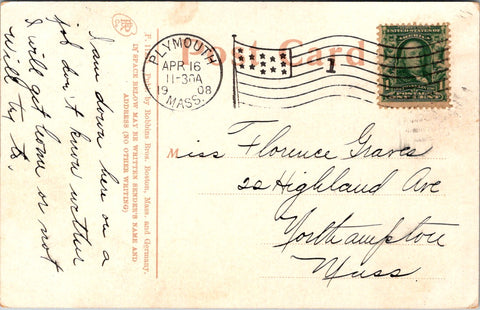 I am down here on a
job don't know wether
I will get home or not
will try to.
by Robbins Bros. Boston, Mass. and Germany.
IN SPACE BELOW MAY BE WRITTEN SENDER'S NAME AND
ADDRESS (NO OTHER WRITING)
Post Card
PLYMOUTH
APR 16
11-30A
1908
MASS.
1
UNITED STATES OF
AMERICA
Miss Florence Graves
22 Highland Ave
Northampton
Mass.